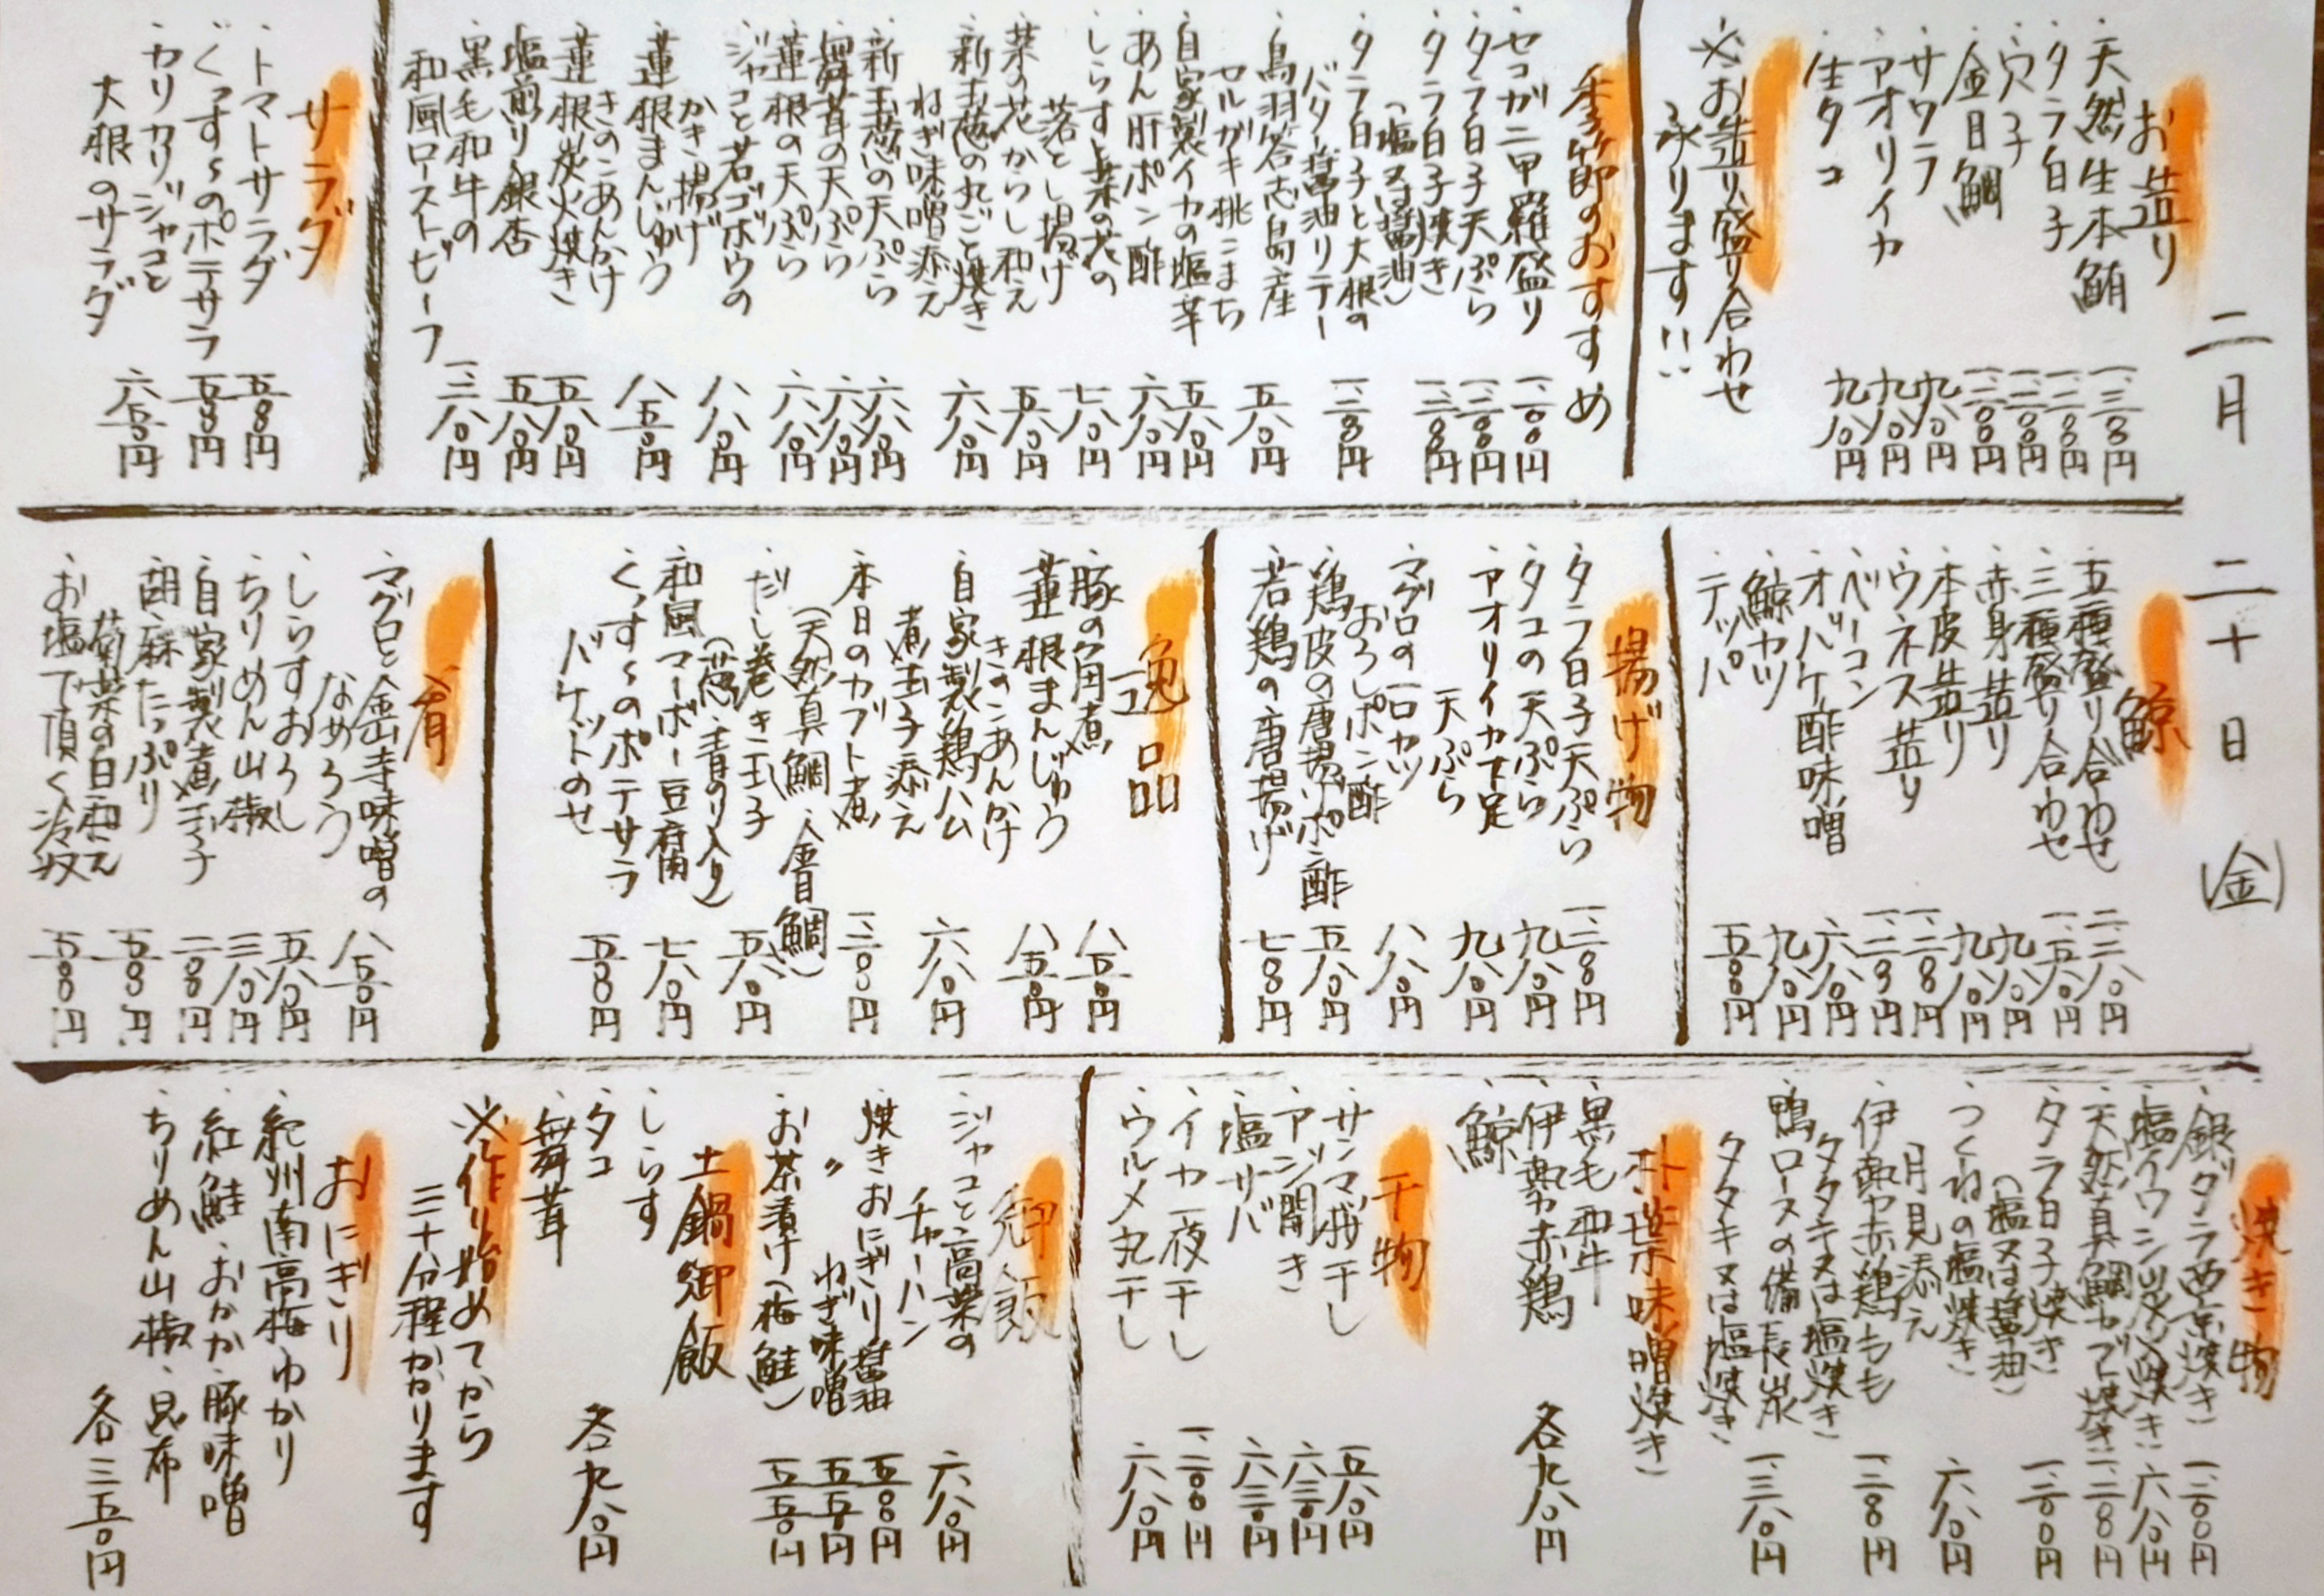 二月二十日(金)
お造り
・天然生本鮪 一、三〇〇円
・タラ白子 一、二〇〇円
・穴子 一、二〇〇円
・金目鯛 一、二〇〇円
・サワラ 九八〇円
・アオリイカ 九八〇円
・生タコ 九八〇円
※お造り盛り合わせ
承ります!!
季節のおすすめ
・セコガニ甲羅盛り 一、二〇〇円
・タラ白子天ぷら 一、二〇〇円
・タラ白子焼き 一、二〇〇円
(塩又は醤油)
・タラ白子と大根の
バター醤油ソテー 一、三〇〇円
・鳥羽答志島産
セルガキ桃こまち 五八〇円
・自家製イカの塩辛 五八〇円
・あん肝ポン酢 六八〇円
・しらすと菜の花の
落とし揚げ 七八〇円
・菜の花からし和え 五八〇円
・新玉葱の丸ごと焼き
ねぎ味噌添え 六八〇円
・新玉葱の天ぷら 六八〇円
・舞茸の天ぷら 六八〇円
・蓮根の天ぷら 六八〇円
・ジャコと若ゴボウの
かき揚げ 八八〇円
・蓮根まんじゅう
きのこあんかけ 八五〇円
・蓮根炭火焼き 五八〇円
・塩煎り銀杏 五八〇円
・黒毛和牛の
和風ローストビーフ 一、三八〇円
サラダ
・トマトサラダ 五五〇円
・ぐっすーのポテサラ 五五〇円
・カリカリジャコと
大根のサラダ 六五〇円
鯨
・五種盛り合わせ 二、二八〇円
・三種盛り合わせ 一、五八〇円
・赤身造り 九八〇円
・本皮造り 九八〇円
・ウネス造り 一、二八〇円
・ベーコン 一、二八〇円
・オバケ酢味噌 六八〇円
・鯨カツ 九八〇円
・テッパ 五五〇円
揚げ物
・タラ白子天ぷら 一、二〇〇円
・タコの天ぷら 九八〇円
・アオリイカ下足
天ぷら 九八〇円
・マグロの一口カツ
おろしポン酢 八八〇円
・鶏皮の唐揚ポン酢 五八〇円
・若鶏の唐揚げ 七八〇円
逸品
・豚の角煮 八五〇円
・蓮根まんじゅう
きのこあんかけ 八五〇円
・自家製鶏ハム
煮玉子添え 六八〇円
・本日のカブト煮 一、三〇〇円
(天然真鯛・金目鯛)
・だし巻き玉子 五八〇円
(葱・青のり入り)
・和風マーボー豆腐 七八〇円
・ぐっすーのポテサラ
バケットのせ 五五〇円
肴
・マグロと金山寺味噌の
なめろう 八五〇円
・しらすおろし 五八〇円
・ちりめん山椒 三八〇円
・自家製煮玉子 二〇〇円
・胡麻たっぷり
菊菜の白和え 五五〇円
・お塩で頂く冷奴 五五〇円
焼き物
・銀ダラ西京焼き 一、二〇〇円
・塩イワシ炭火焼き 六八〇円
・天然真鯛カブト焼き 一、二八〇円
・タラ白子焼き 一、二〇〇円
(塩又は醤油)
・つくねの塩焼き
月見添え 六八〇円
・伊勢赤鶏もも
タタキ又は塩焼き 一、二八〇円
・鴨ロースの備長炭
タタキ又は塩焼き 一、三八〇円
朴葉味噌焼き
・黒毛和牛
・伊勢赤鶏
・鯨
各九八〇円
干物
・サンマ桜干し 五八〇円
・アジ開き 六三〇円
・塩サバ 六三〇円
・イカ一夜干し 一、二〇〇円
・ウルメ丸干し 六八〇円
御飯
・ジャコと高菜の
チャーハン 六八〇円
・焼きおにぎり醤油 五〇〇円
・〃 ねぎ味噌 五五〇円
・お茶漬け(梅・鮭) 五五〇円
土鍋御飯
・しらす
・タコ
・舞茸
各九八〇円
※作り始めてから
三十分程かかります
おにぎり
・紀州南高梅・ゆかり
・紅鮭・おかか・豚味噌
・ちりめん山椒・昆布
各三五〇円